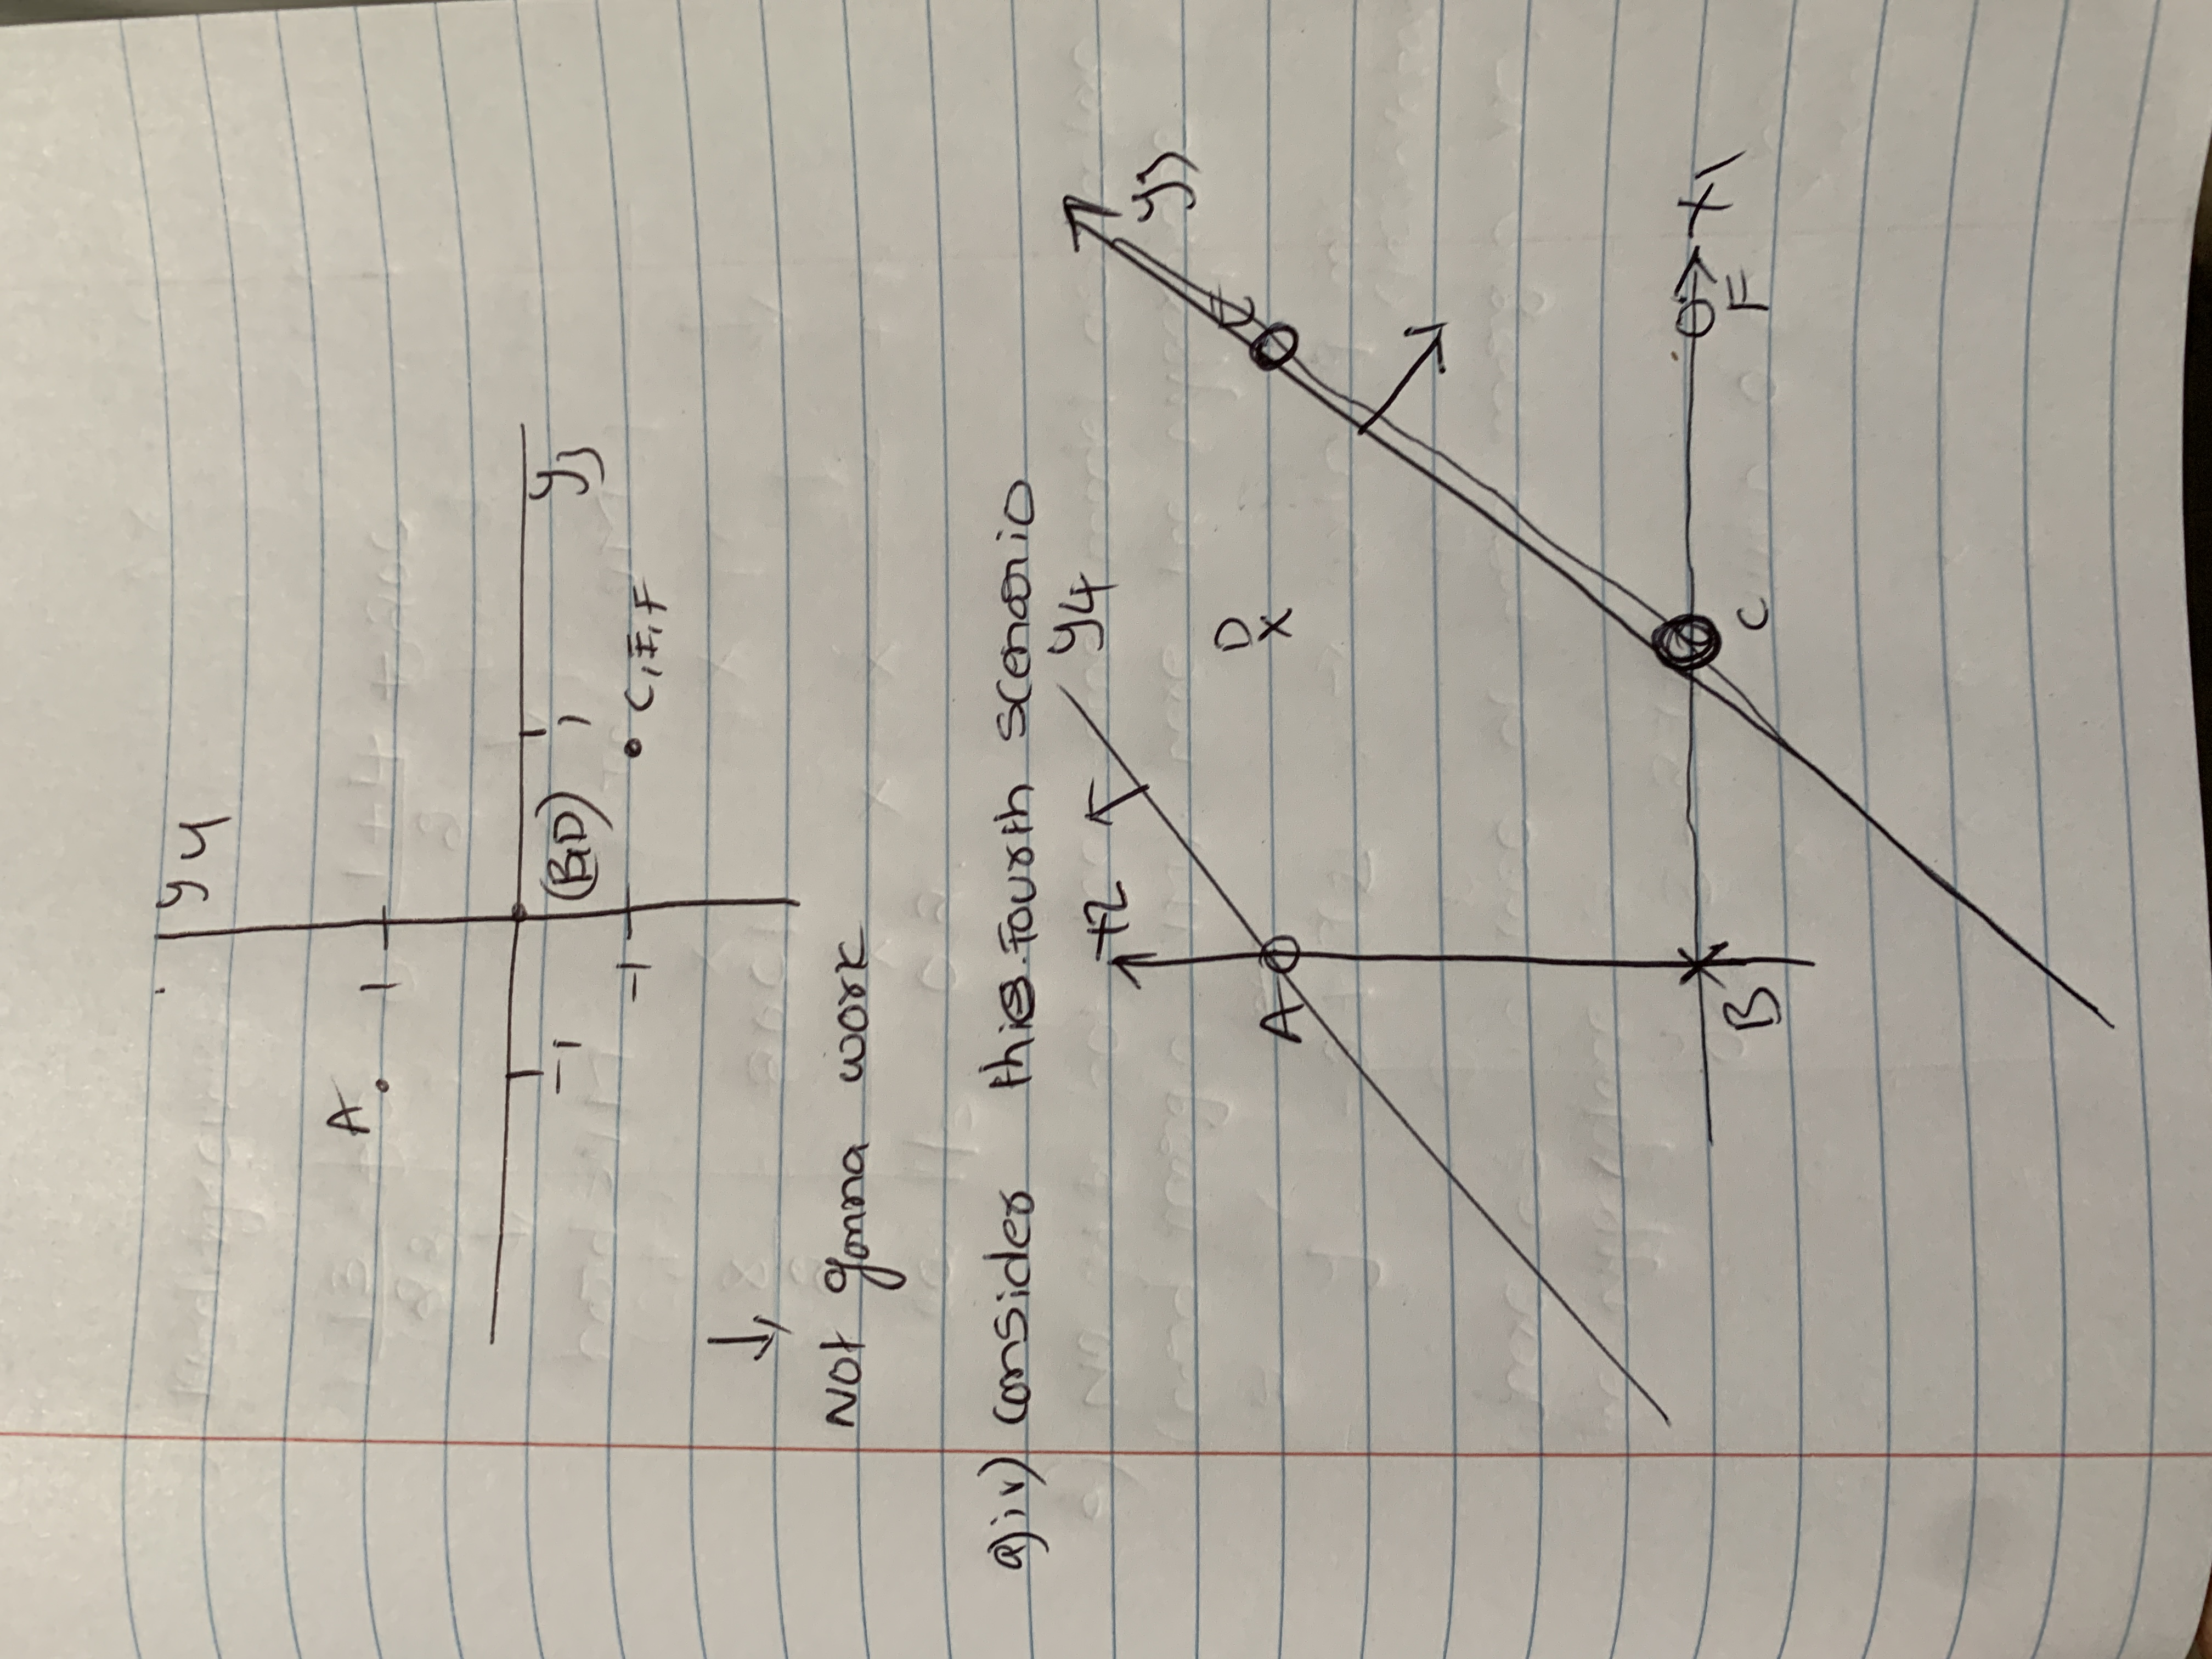 y4
A
1
-1
(B,D)
1
y3
-1
C, E, F
Not gonna work
a)iv) consider this fourth scenario
y4
x2
y3
D
E
A
x1
B
C
F